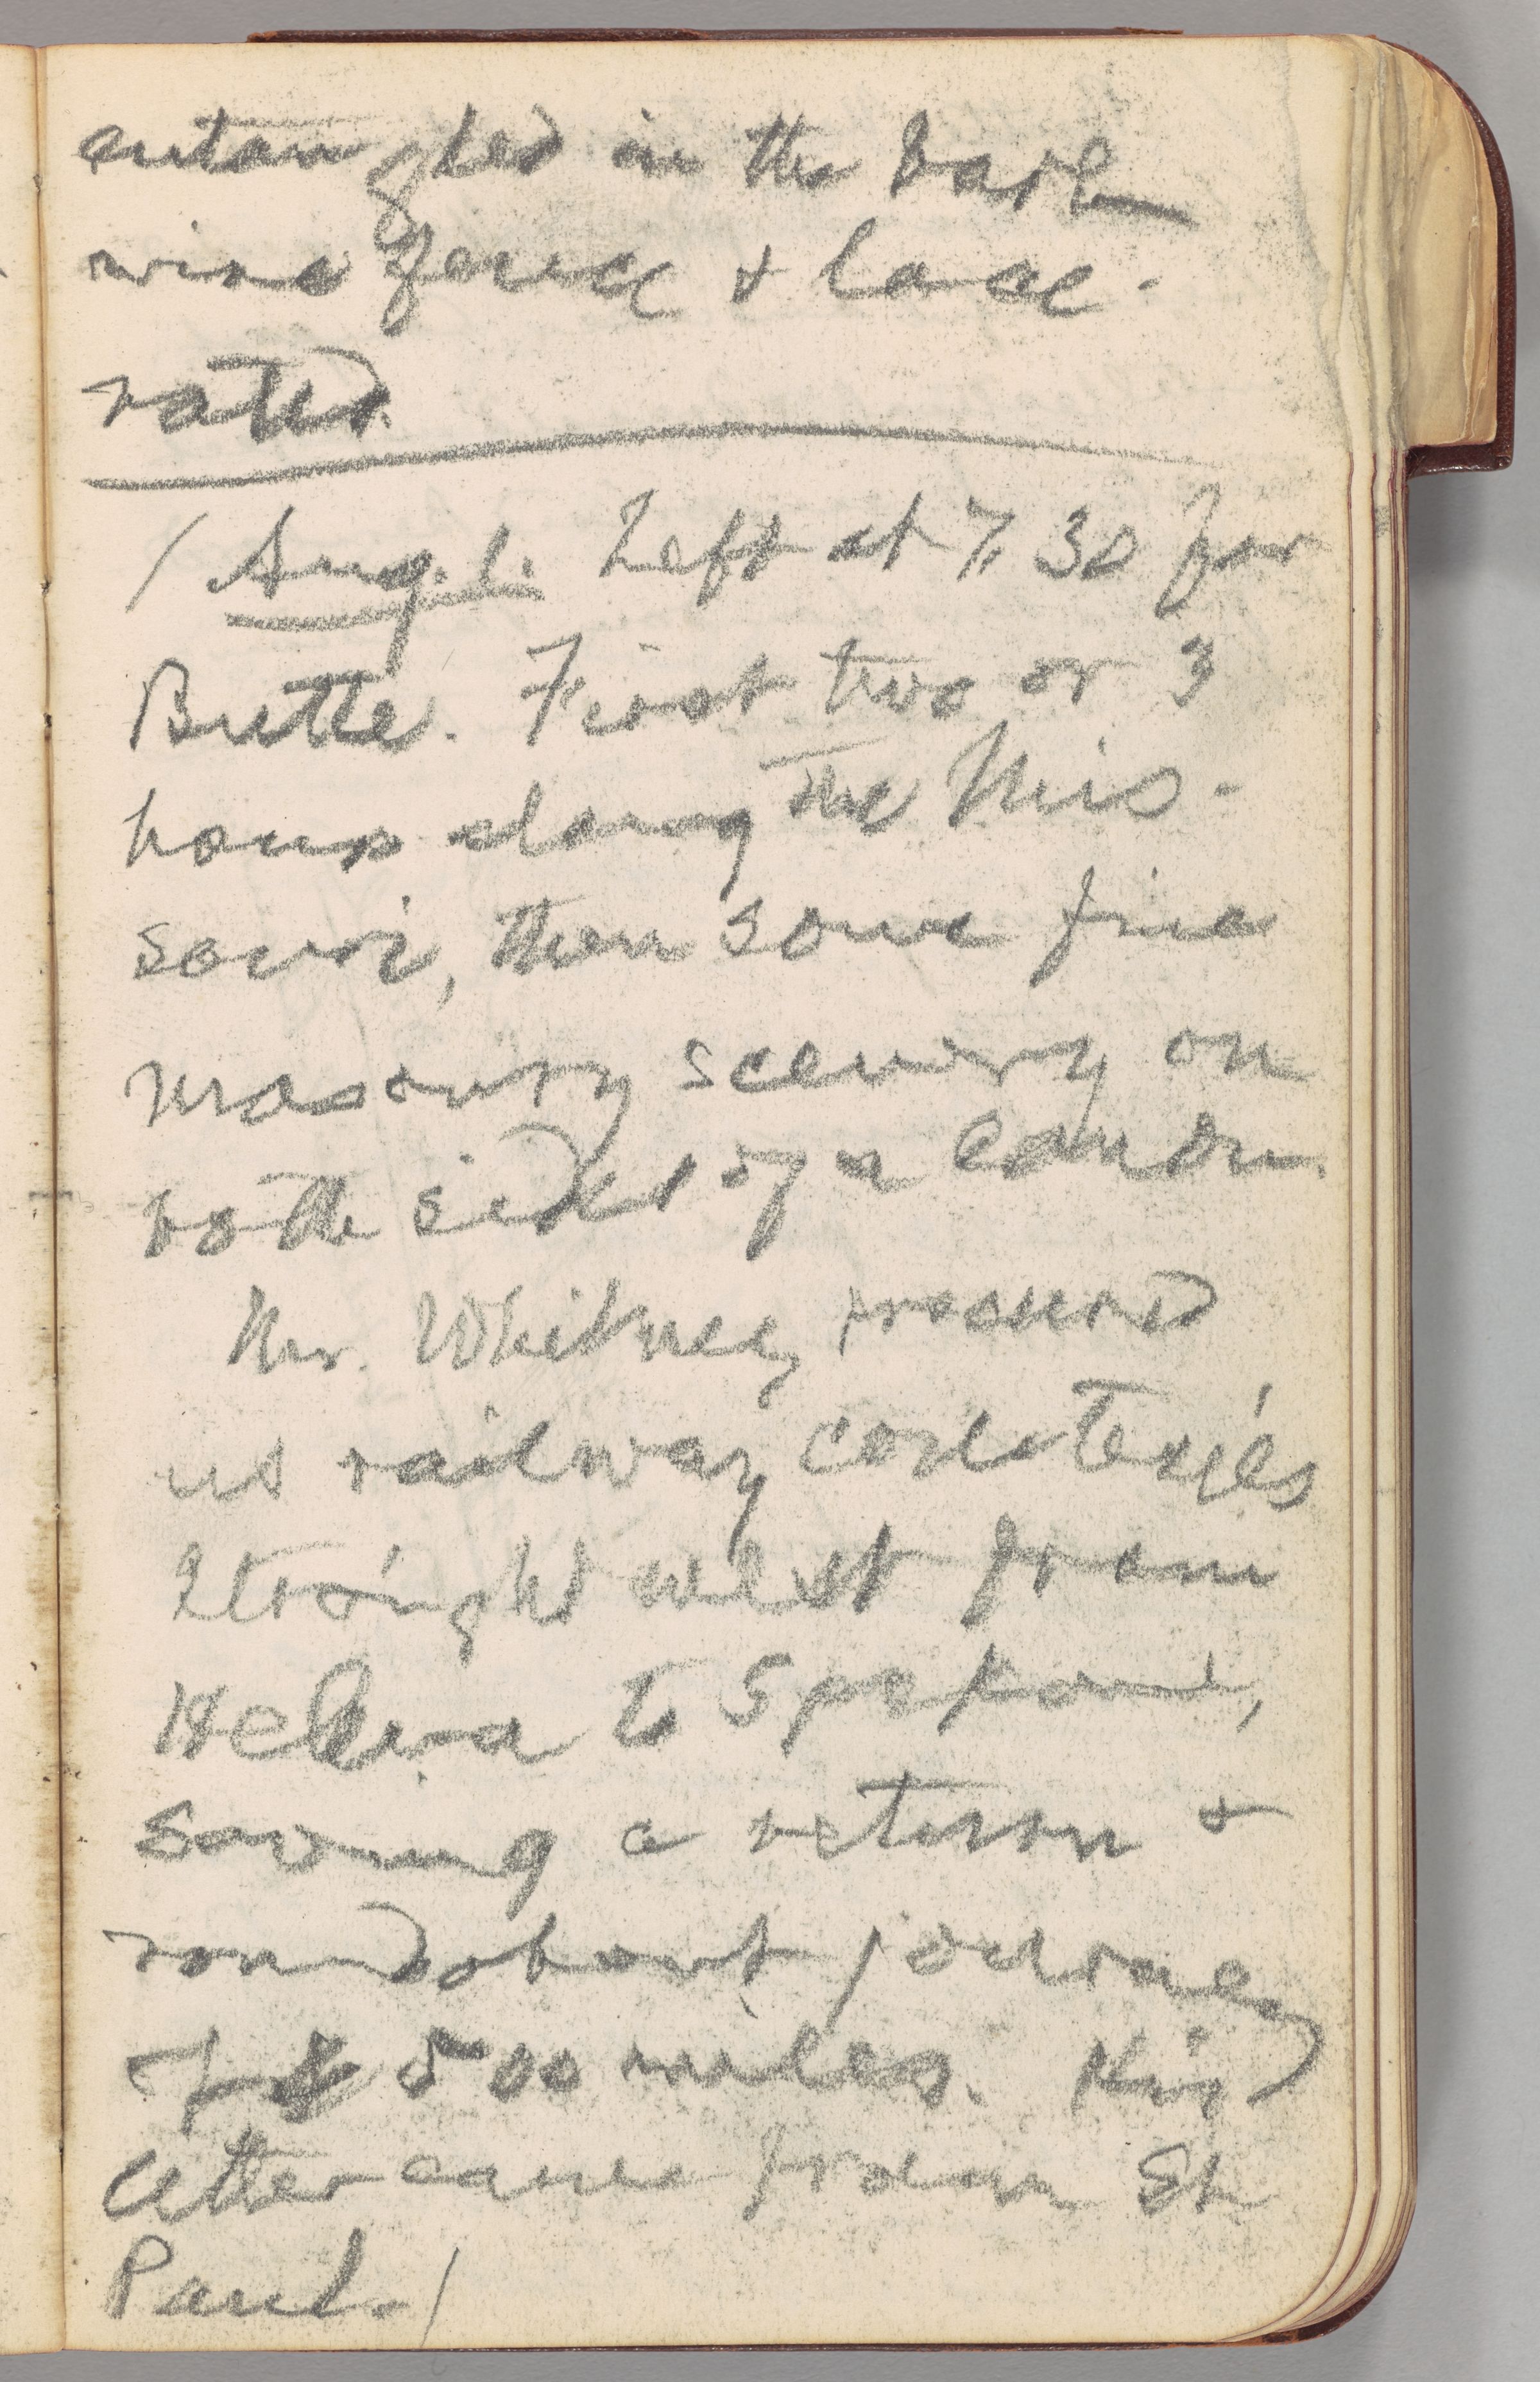 entangled in the barb
wire fence & lace-
rated.
/ Aug. 1. Left at 7: 30 for
Butte. First two or 3
hours along the Mis-
souri, then some fine
masonry scenery on
both sides of a cañon.
Mr. Whitney procured
us railway courtesies
straight west from
Helena to Spokane,
saving a return &
roundabout journey
of 500 miles. Kind
letter came from St
Paul. /